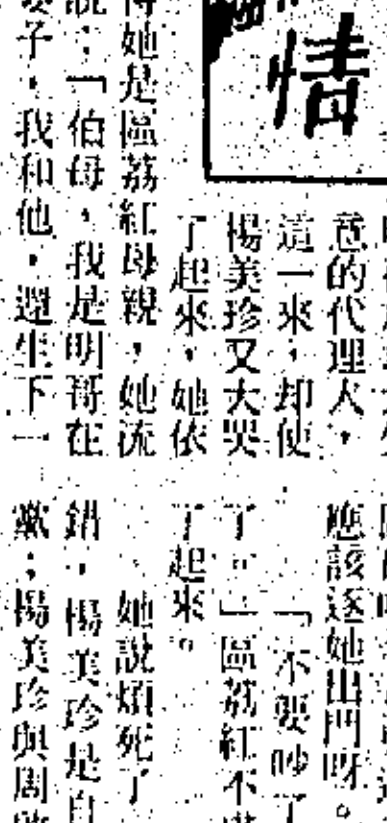 情
意的代理人，
這一來，却使
楊美珍又大哭
了起來，她依
她是區荔紅母親，她流
：「伯母，我是明哥在
子，我和他，還生下一
應該逐她出門呀。
「不要吵了
了。」區荔紅不
了起來。
她說煩死了
錯，楊美珍是自
歉；楊美珍與周